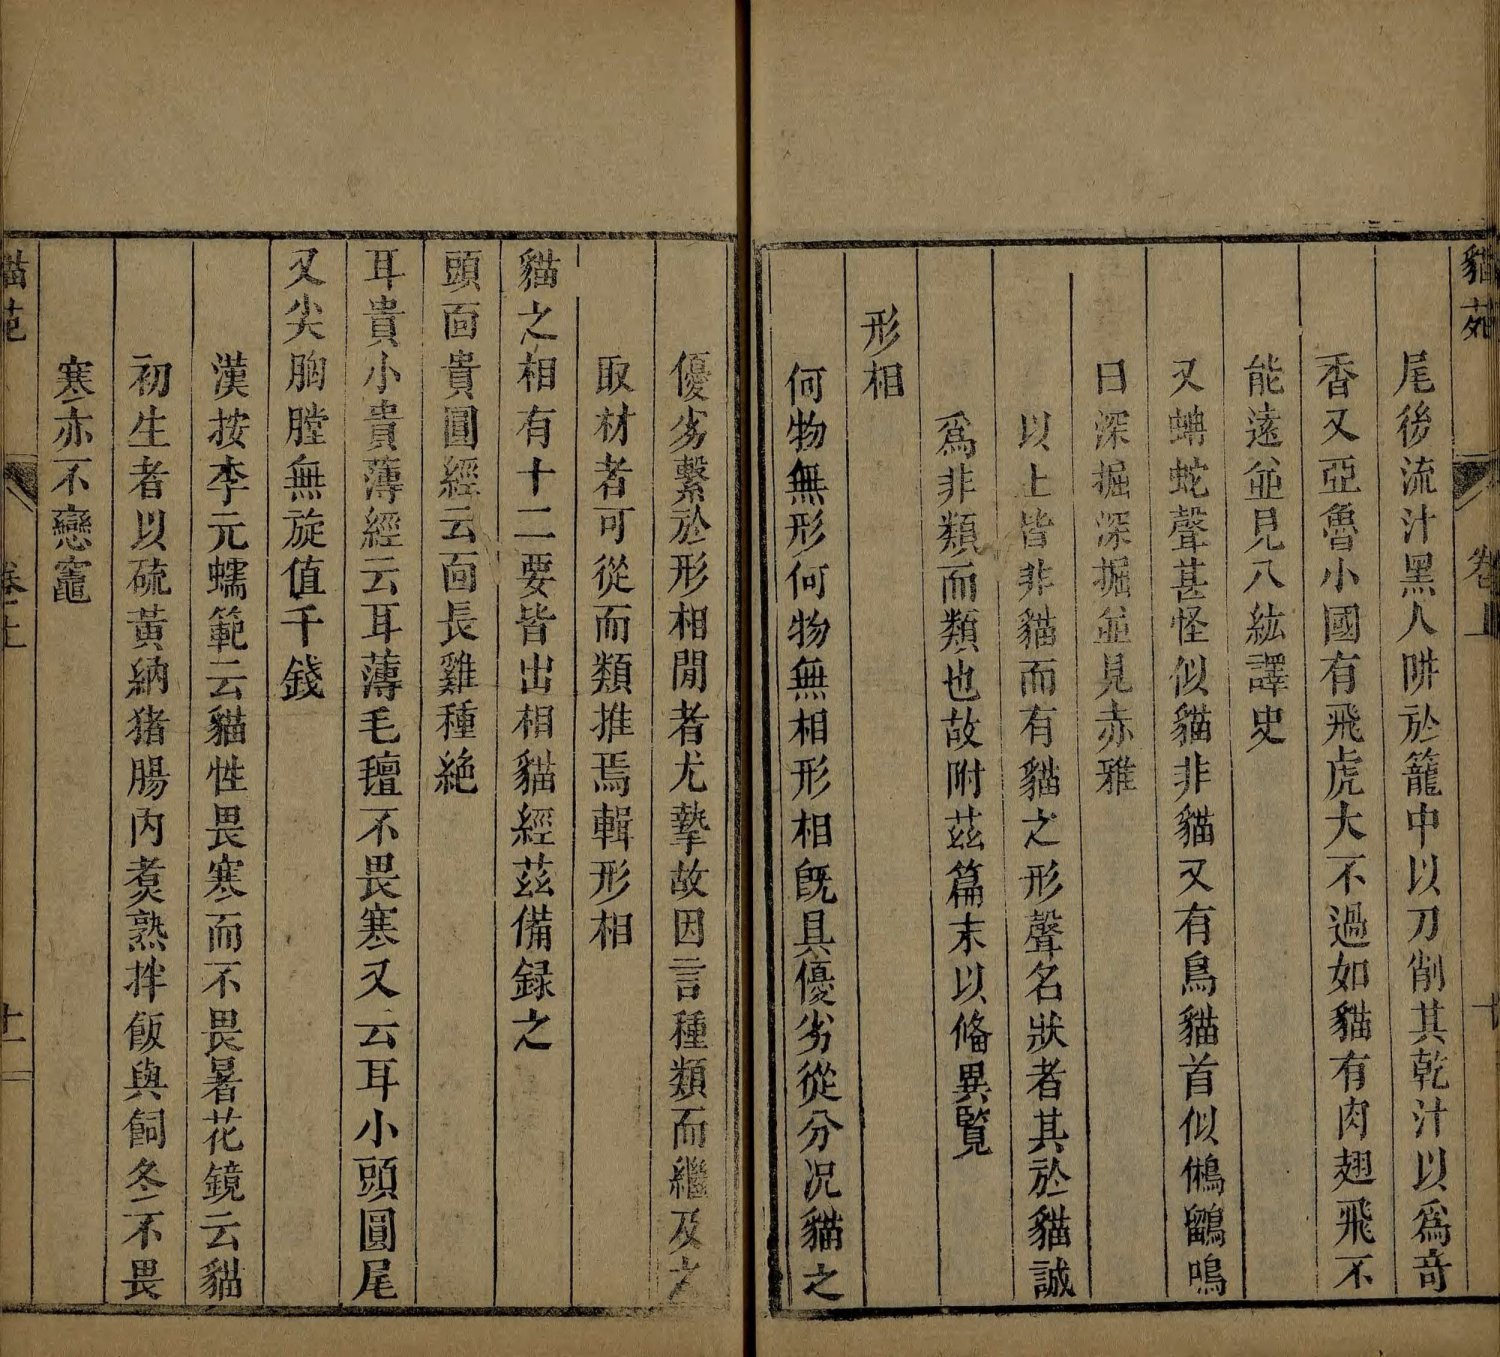 貓苑
卷上
十
尾後流汁黑人阱於籠中以刀削其乾汁以爲奇
香又亞魯小國有飛虎大不過如貓有肉翅飛不
能遠並見八紘譯史
又蚺蛇聲甚怪似貓非貓又有鳥貓首似鵂鶹鳴
曰深掘深掘並見赤雅
以上皆非貓而有貓之形聲名狀者其於貓誠
爲非類而類也故附茲篇末以備異覽
形相
何物無形何物無相形相旣具優劣從分况貓之
優劣繫於形相閒者尤摯故因言種類而繼及之
取材者可從而類推焉輯形相
貓之相有十二要皆出相貓經茲備録之
頭面貴圓經云面長雞種絶
耳貴小貴薄經云耳薄毛氊不畏寒又云耳小頭圓尾
又尖胸膛無旋值千錢
漢按李元蠕範云貓性畏寒而不畏暑花鏡云貓
初生者以硫黃納猪腸內煑熟拌飯與飼冬不畏
寒亦不戀竈
貓苑
卷上
十一